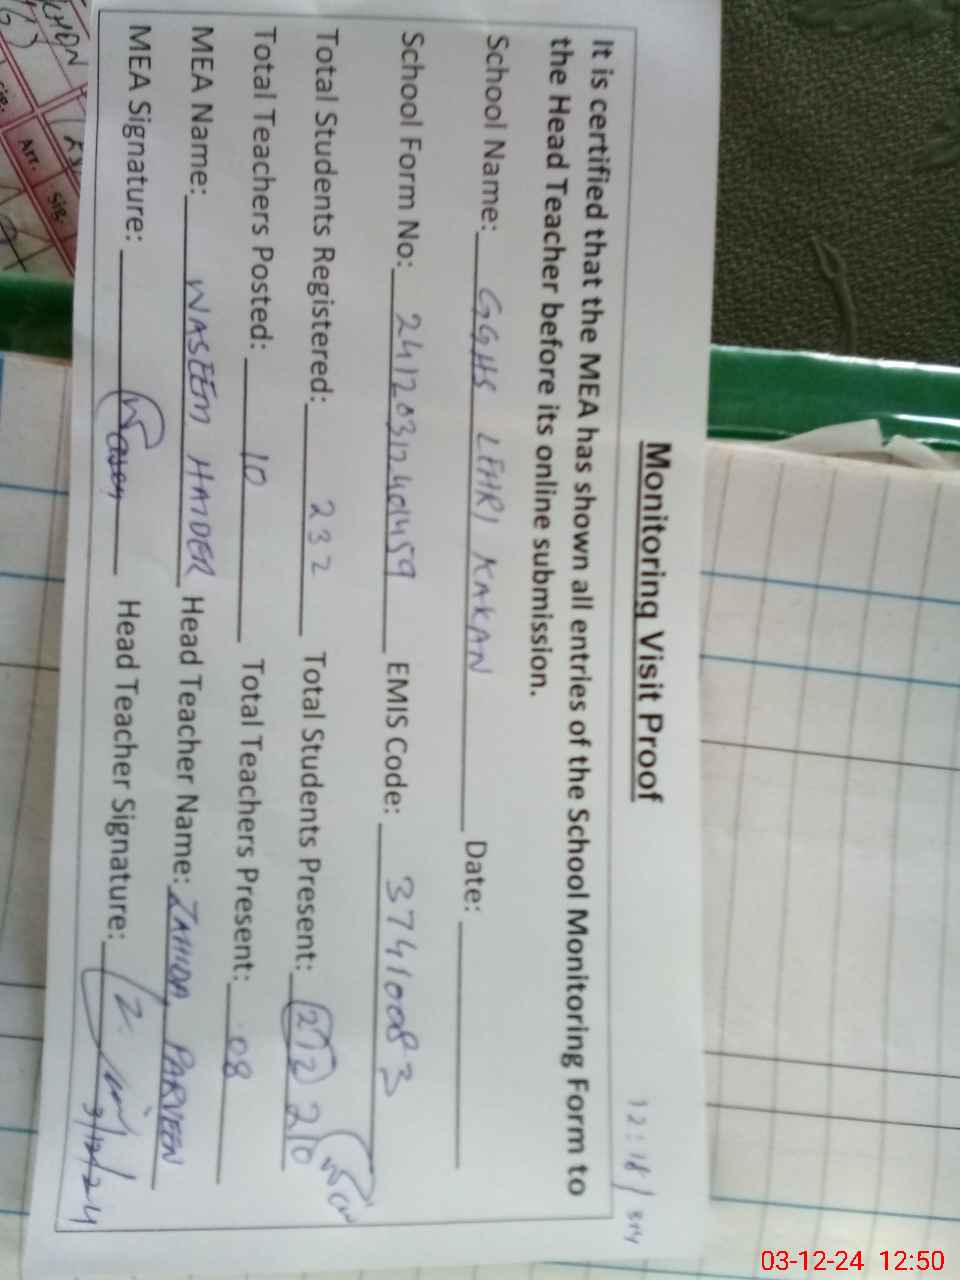 12:18/
Monitoring Visit Proof
It is certified that the MEA has shown all entries of the School Monitoring Form to
the Head Teacher before its online submission.
School Name: GGHS LEHRI KAKAN Date:
School Form No: 24120312401459 EMIS Code: 37410083
Total Students Registered: 232 Total Students Present: 212 210
Total Teachers Posted: 10 Total Teachers Present: 08
MEA Name: WASEEM HAIDER Head Teacher Name: ZAHIDA PARVEEN
MEA Signature: Waseem Head Teacher Signature:
3/12/24
Arr. Sig.
03-12-24 12:50